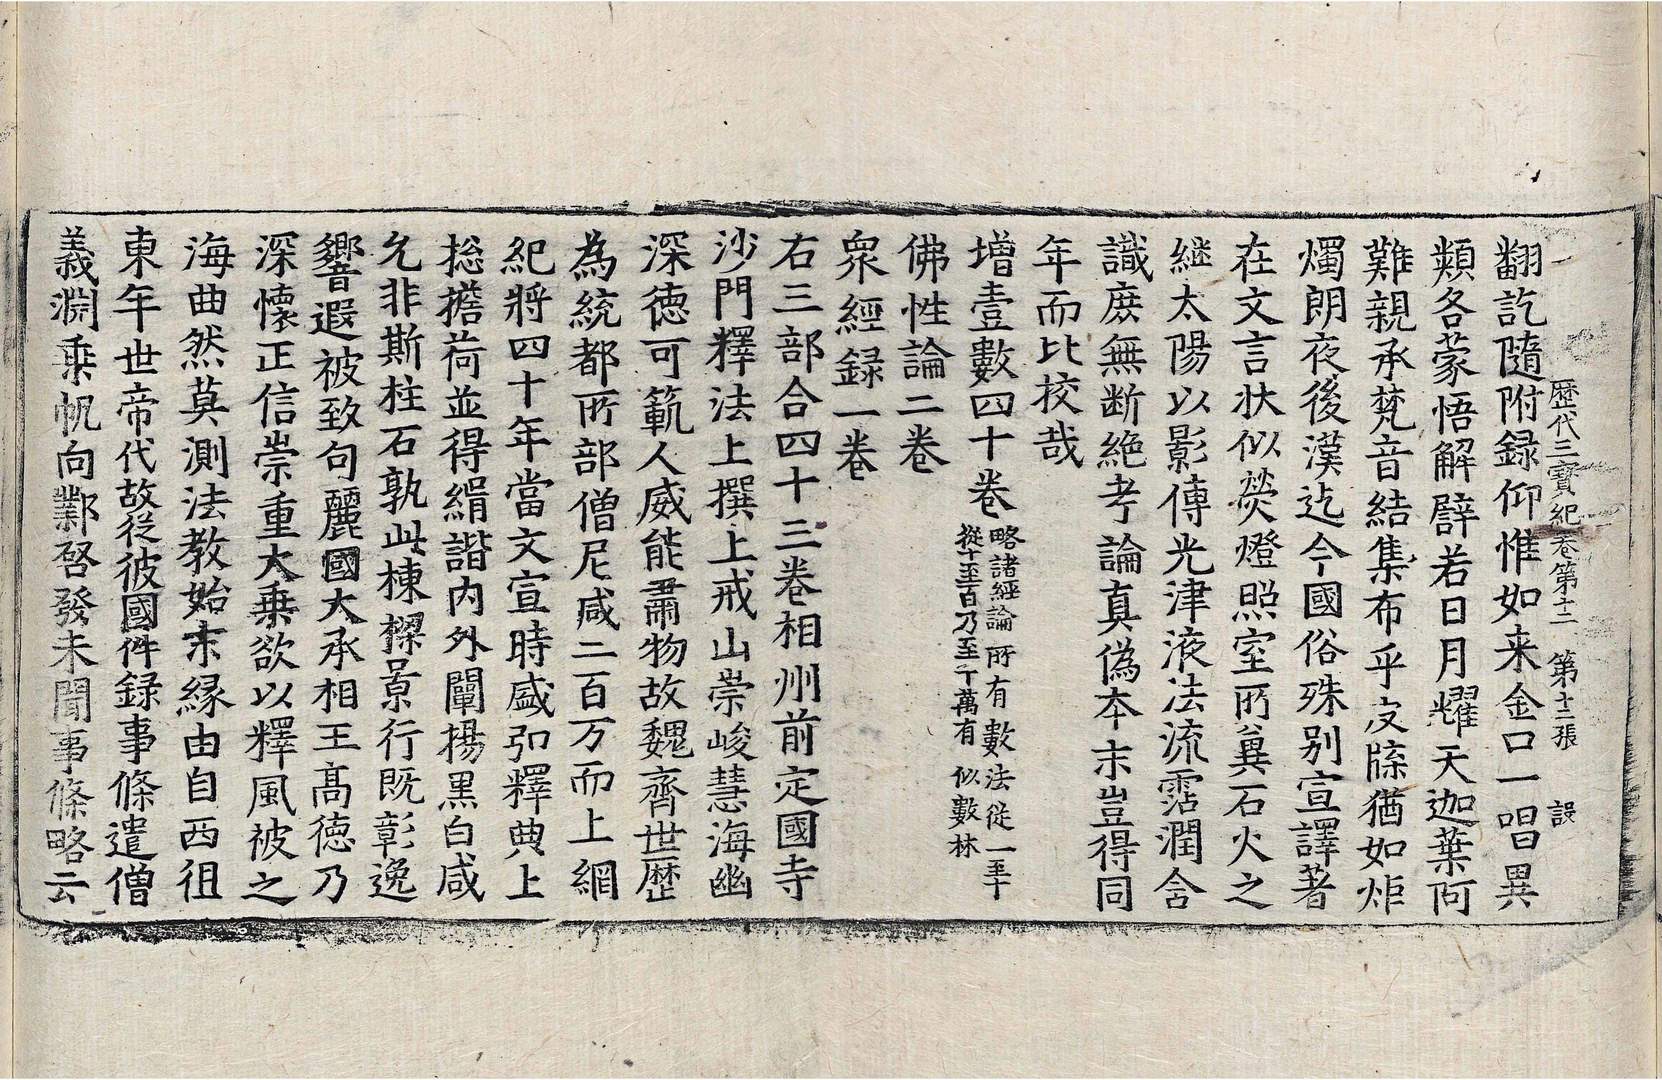 歷代三寶紀卷第十二　第十二張　設
翻訖隨附録仰惟如来金口一唱異
類各蒙悟解譬若日月耀天迦葉阿
難親承梵音結集布乎皮牒猶如炬
燭朗夜後漢迄今國俗殊别宣譯著
在文言状似熒燈照室所兾石火之
継太陽以影傳光津液法流霑潤含
識庶無断絶考論真偽本末豈得同
年而比挍哉
増壹數四十卷略諸經論所有數法從一至十
從十至百乃至千萬有似數林
佛性論二卷
衆經録一卷
右三部合四十三卷相州前定國寺
沙門釋法上撰上戒山崇峻慧海幽
深徳可範人威能肅物故魏齊世歴
為統都所部僧尼咸二百万而上綱
紀將四十年當文宣時盛弘釋典上
捴擔荷並得緝諧内外闡揚黒白咸
允非斯柱石孰此棟樑景行既彰逸
響遐被致句麗國大承相王髙徳乃
深懷正信崇重大乗欲以釋風被之
海曲然莫測法教始末縁由自西徂
東年世帝代故從彼國件録事條遣僧
義淵乗帆向鄴啓發未聞事條略云